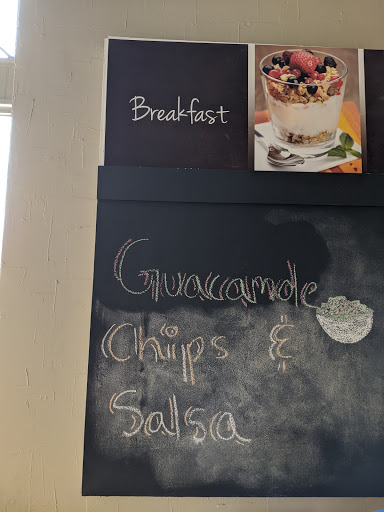 Breakfast
Guacamole
Chips &
Salsa